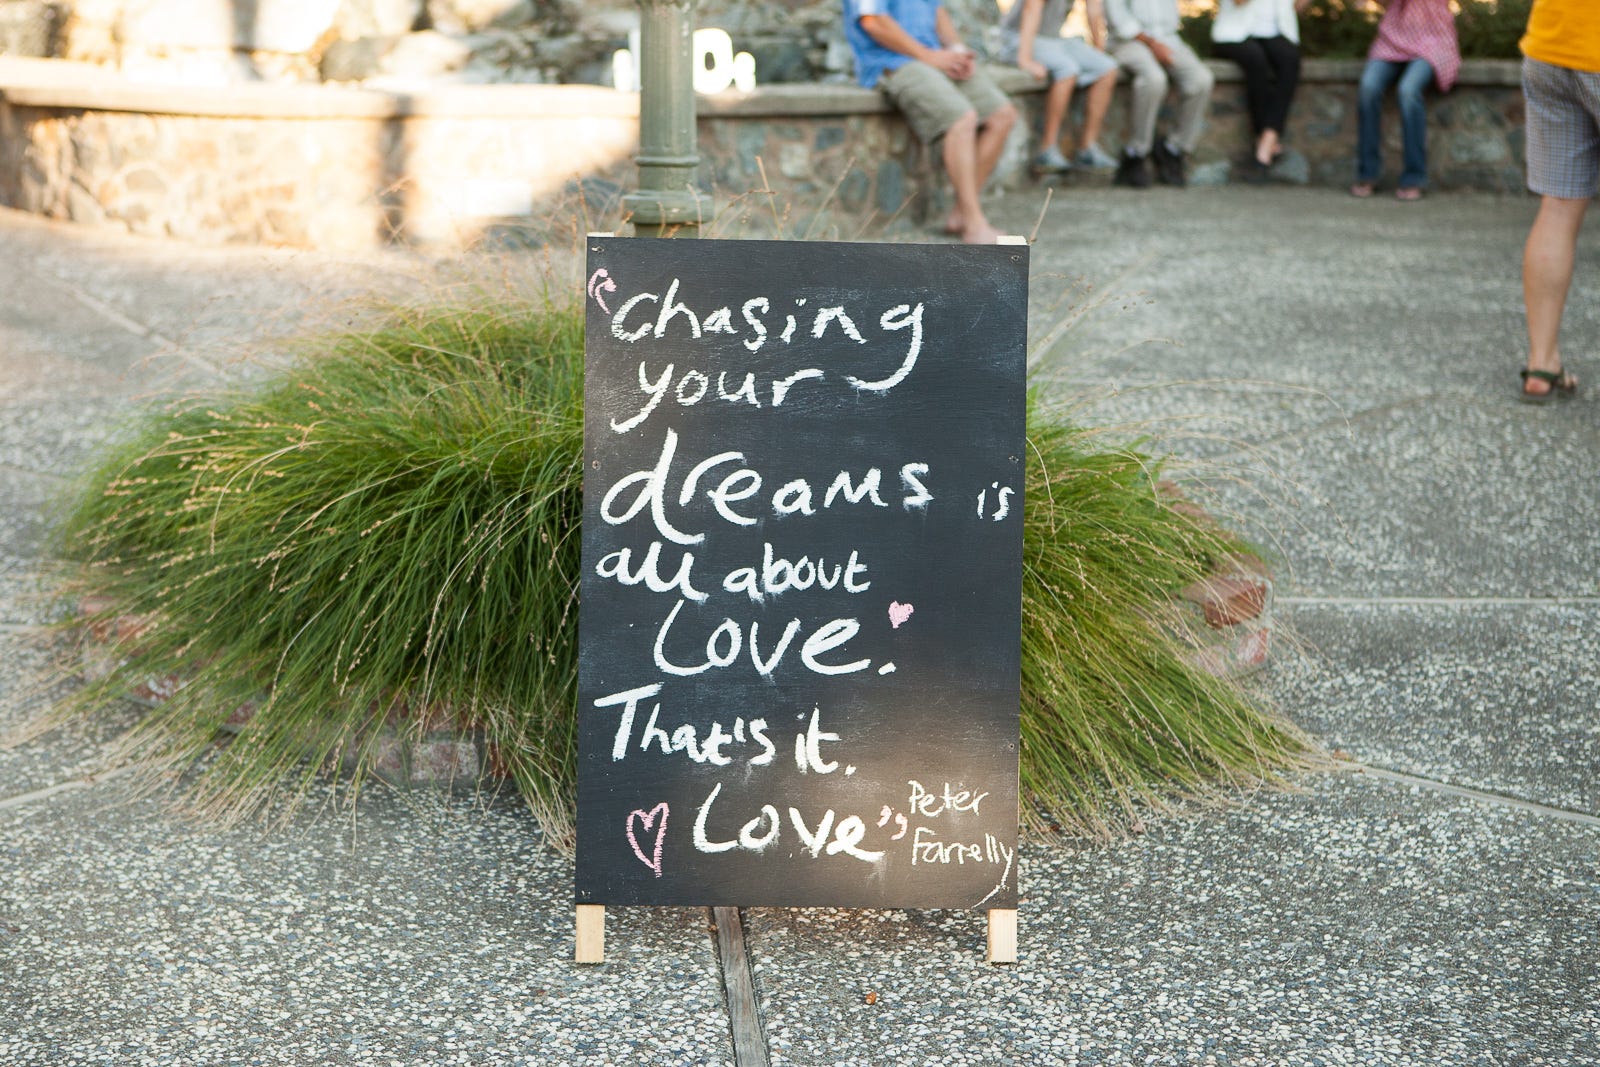 "chasing
your
dreams is
all about
Love.
That's it.
Love" Peter
Farrelly